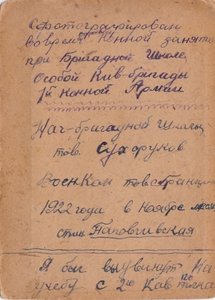 Сфотографирован
во время конной заняти
при Бригадной школе
Особой Кав-бригады
1й конной Армии
Нач-бригадной школы
тов. Сухоруков
Военком тов
1922 года в Ноябре месяце
стан.
Я был выдвинут На
учебу с 2го Кав полка